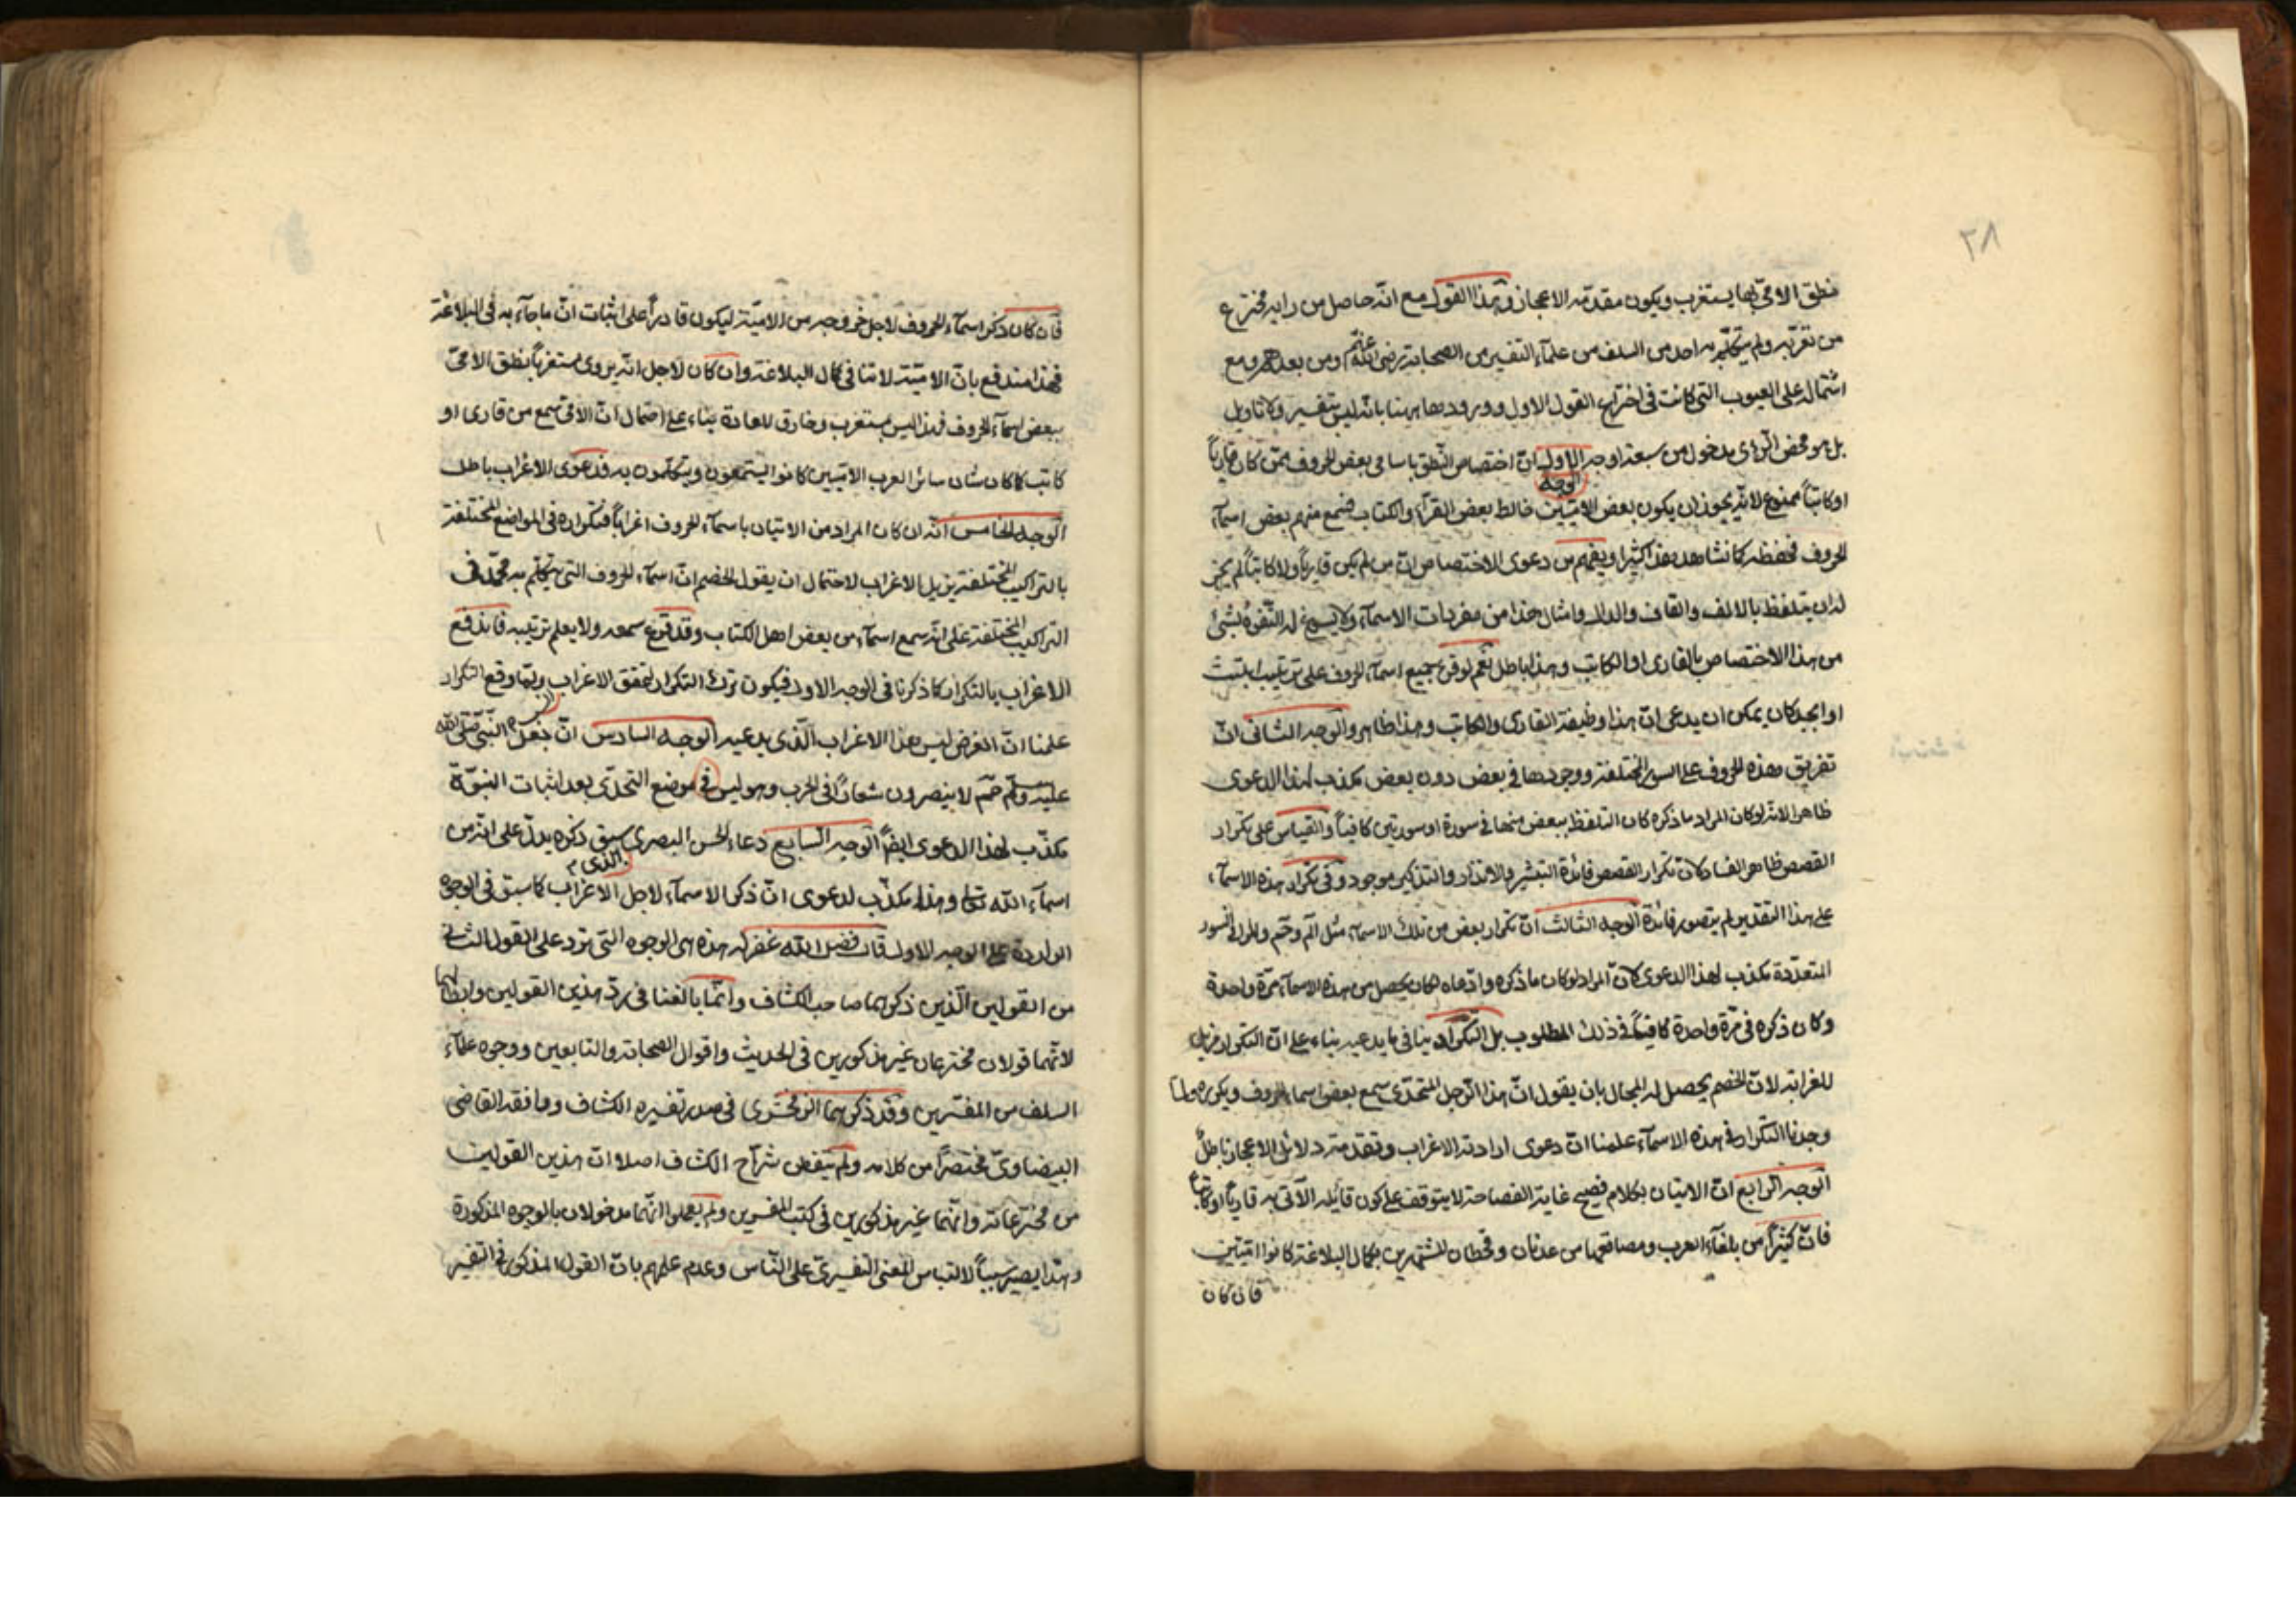 ٢٨
نطق الامّى بها يستغرب ويكون مقدّمة الاعجاز وهذا القول مع انّه حاصل من رايه مخترع
من تقرّبه ولم يتكلّم به احد من السلف من علمآء التفسير من الصحابة رضى الله عنهم ومن بعدهم ومع
اشتماله على العيوب التى كانت فى اختراع القول الاول وورودها ههنا بانّه ليس بتفسير ولا تاويل
بل هو محض الرّأى مدخول من سبعة اوجه الاول انّ اختصاص النّطق باسامى بعض الحروف بمن كان قارياً
الوجه
اوكاتباً ممنوع لانّه يجوز ان يكون بعض الاميّين خالط بعض القرآء والكتاب فسمع منهم بعض اسمآء
الحروف فحفظه كما نشاهد هذا كثيرا ويفهم من دعوى الاختصاص انّ من لم يكن قارياً ولا كاتباً لم يجز
له ان يتلفظ بالالف والقاف والدال وامثال هذا من مفردات الاسمآء ولا يسوغ له التّفوّه بشئ
من هذا الاختصاص بالقارى او الكاتب وهذا باطل نعم لو قرئ جميع اسمآء الحروف على ترتيب ابتث
او ابجد كان يمكن ان يدعى انّ هذا وظيفة القارى والكاتب وهذا ظاهر والوجه الثانى انّ
تفريق هذه الحروف على السور المختلفة ووجودها فى بعض دون بعض مكذب لهذا الدعوى
ظاهر الانّه لو كان المراد ما ذكره كان التلفظ ببعض منها فى سورة او سورتين كافياً والقياس على تكرار
القصص ظاهر الفساد لانّ تكرار القصص فائدة التبشير والانذار والتذكير موجود وفى تكرار هذه الاسمآء
على هذا التقدير لم يتصور فائدة الوجه الثالث انّ تكرار بعض من تلك الاسمآء مثل الم وحم والر فى السور
المتعدّدة مكذب لهذا الدعوى لانّ المراد لو كان ما ذكره وادّعاه لكان يحصل من هذه الاسمآء مرّة واحدة
وكان ذكره فى مرّة واحدة كافياً فى ذلك المطلوب بل التكرار ينافى ما يدعيه بناء على انّ التكرار مزيل
للغرابة لانّ الخصم يحصل له المجال بان يقول انّ هذا الرّجل المتحدّى سمع بعض اسماء الحروف ويكرره ولما
وجدنا التكرار فى هذه الاسمآء علمنا انّ دعوى ارادة الاغراب وتقدمة دلائل الاعجاز باطلٌ
الوجه الرابع انّ الاتيان بكلام فصيح غاية الفصاحة لا يتوقف على كون قائله الآتى به قارياً او كاتبا
فانّ كثيراً من بلغآء العرب ومصاقعها من عدنان وقحطان المشتهرين بكمال البلاغة كانوا اميّين
فان كان
فان كان ذكر اسمآء الحروف لاجل خروجه من الاميّة ليكون قادراً على اثبات انّ ما جآء به فى البلاغة
فهذا مندفع بانّ الاميّة لا تنافى كمال البلاغة وان كان لاجل انّه يروى مستغرباً بنطق الامىّ
ببعض اسمآء الحروف فهذا ليس بمستغرب وخارق للعادة بناء على احتمال انّ الامّى سمع من قارى او
كاتب كما كان شان سائر العرب الاميّين كانوا يستمعون ويتكلمون به فدعوى الاغراب باطل
الوجه الخامس انّه ان كان المراد من الاتيان باسمآء الحروف اغراباً فتكراره فى المواضع المختلفة
بالتراكيب المختلفة يزيل الاغراب لاحتمال ان يقول الخصم انّ اسمآء الحروف التى يتكلّم به محمّد فى
التراكيب المختلفة على انّه سمع اسمآء من بعض اهل الكتاب وقد قرع سمعه ولا يعلم ترتيبه فاندفع
الاغراب بالتكرار كما ذكرنا فى الوجه الاول فيكون ترك التكرار لتحقق الاغراب ولمّا وقع التكرار
علمنا انّ الغرض ليس هذا الاغراب الّذى يدعيه الوجه السادس انّ بفعل النّبىّ صلّى الله
عليه وسلّم حم لا ينصرون شعاراً فى الحرب وهو ليس فى موضع التحدّى بعد اثبات النبوّة
مكذّب لهذا الدعوى ايضاً الوجه السّابع دعاء الحسن البصرى سبق ذكره يدلّ على انّه من
الذى
اسمآء الله تعالى وهذا مكذّب لدعوى انّ ذكر الاسمآء لاجل الاغراب كما سبق فى الوجوه
الواردة على الوجه الاول قال فضل الله غفر له هذه هى الوجوه التى ترد على القول الثانى
من القولين الّذين ذكرهما صاحب الكشاف وانّما بالغنا فى ردّ هذين القولين وابطالهما
لانّهما قولان مخترعان غير مذكورين فى الحديث واقوال الصحابة والتابعين ووجوه علمآء
السلف من المفسّرين وقد ذكرهما الزمخشرى فى صدر تفسيره الكشاف ووافقه القاضى
البيضاوىّ مختصراً من كلامه ولم يتفطن شرّاح الكشاف اصلا انّ هذين القولين
من مخترعاته وانّهما غير مذكورين فى كتب المفسرين ولم يعلموا انّهما مدخولان بالوجوه المذكورة
وهذا يصير سبباً لالتباس المعنى التفسيرىّ على النّاس وعدم علمهم بانّ القول المذكور فى التفسير